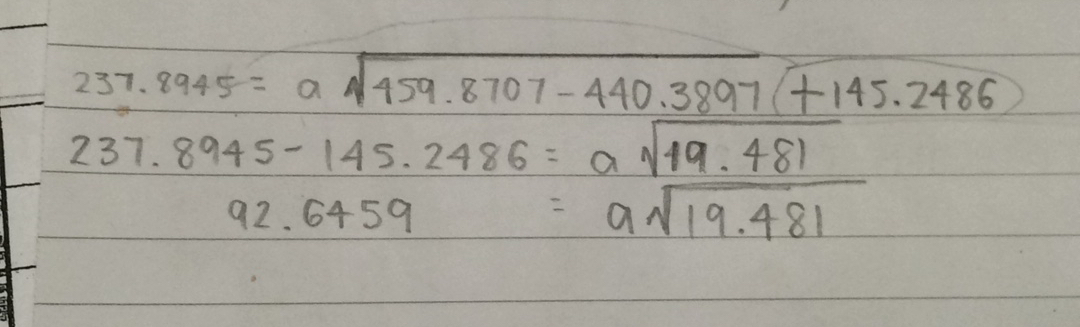 237.8945 = a √459.8707 - 440.3897 (+ 145.2486)
237.8945 - 145.2486 = a √19.481
92.6459 = a √19.481